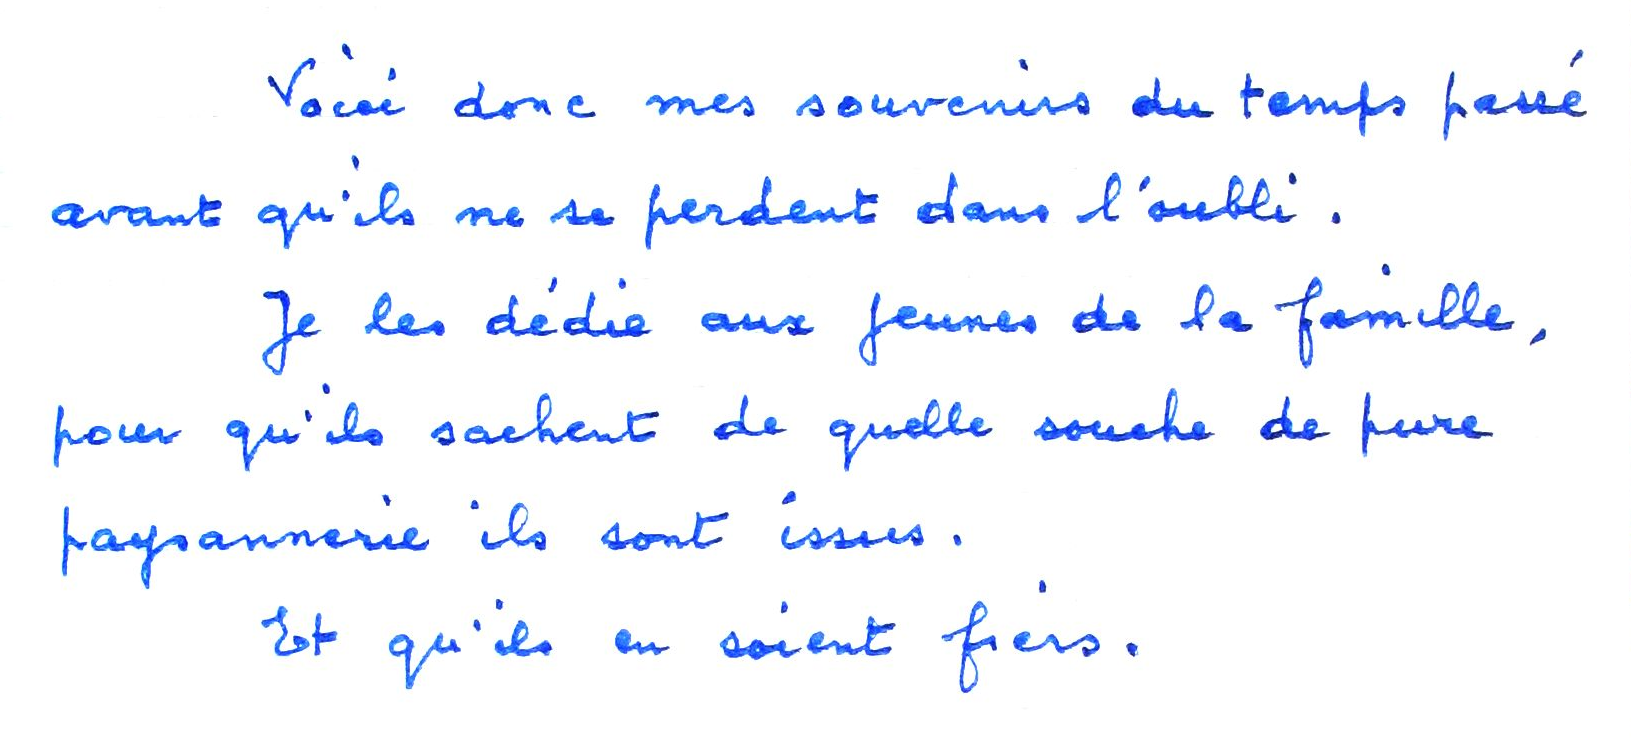 Voici donc mes souvenirs du temps passé
avant qu'ils ne se perdent dans l'oubli.
Je les dédie aux jeunes de la famille,
pour qu'ils sachent de quelle souche de pure
paysannerie ils sont issus.
Et qu'ils en soient fiers.